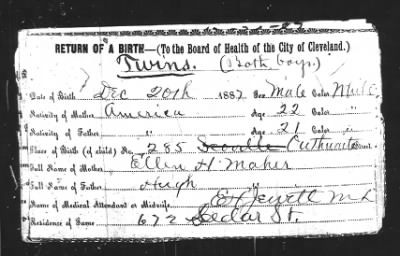 RETURN OF A BIRTH—(To the Board of Health of the City of Cleveland.)
Twins. (Both boys.)
Date of Birth Dec 20th 1887 Sex Male Color
Nativity of Mother America Age 22 Color "
Nativity of Father " Age 21 Color "
Place of Birth (of child) No. 285 Scoville Street.
Full Name of Mother Ellen H. Maher
Full Name of Father Hugh
Name of Medical Attendant or Midwife, E H Jewett M D
Residence of Same 672 Cedar St.